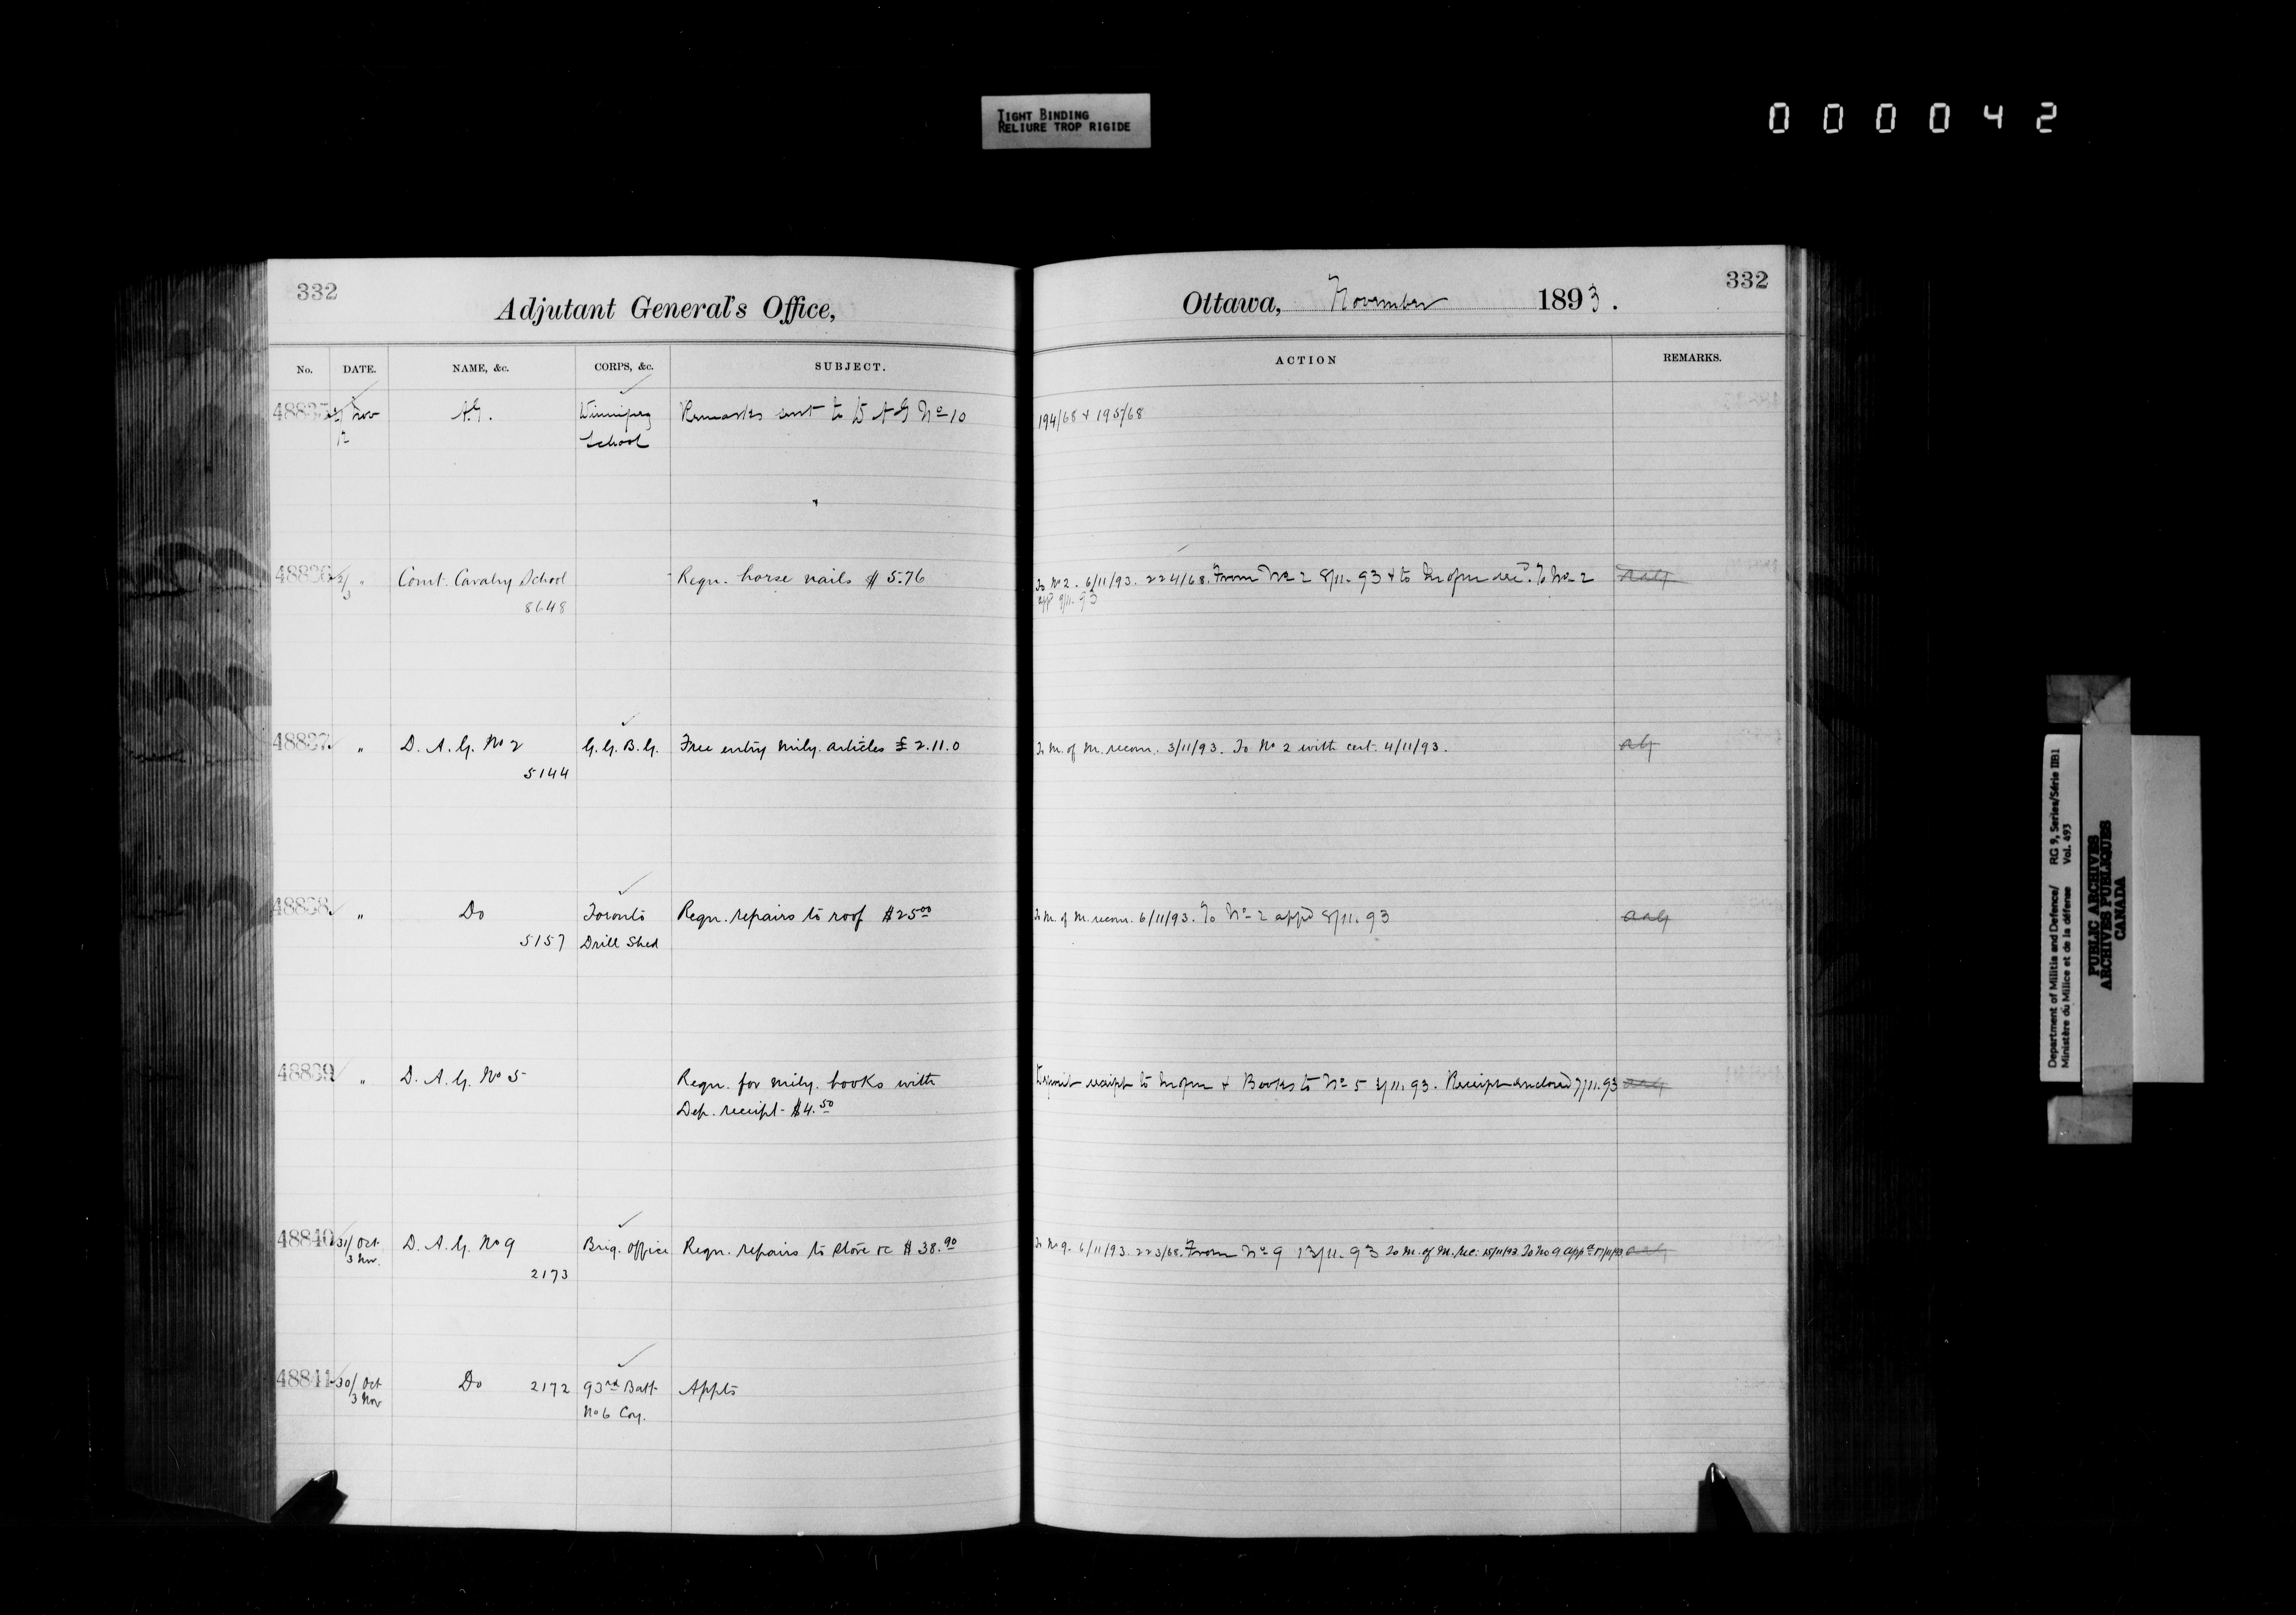 TIGHT BINDING
RELIURE TROP RIGIDE
000042
332
Adjutant General's Office,
Ottawa, November 1893.
332
No. DATE. NAME, &c. CORPS, &c. SUBJECT. ACTION REMARKS.
48835 2/ Nov A.G. Winnipeg Remarks sent to D A G No 10 194/68 & 195/68
School
48836 2/3 " Comt. Cavalry School Reqn. horse nails $5.76 To No 2. 6/11/93. 224/68. From No 2 8/11.93 & to recd. To No 2 aag
8648 9/11.93
48837 " D. A. G. No 2 G. G. B. G. Free entry mily. articles £2.11.0 To M. of M. recom. 3/11/93. To No 2 with cert. 4/11/93. ag
5144
48838 " Do Toronto Reqn. repairs to roof $25.00 To M. of M. recom. 6/11/93. To No 2 appd 8/11.93 aag
5157 Drill Shed
48839 " D. A. G. No 5 Reqn. for mily. books with Deposit receipt to & Books to No 5 /11.93. Receipt enclosed 7/11.93 aag
Dep. receipt $4.50
48840 31/ Oct D. A. G. No 9 Brig. Office Reqn. repairs to stove &c $38.90 To No 9. 6/11/93. 223/68. From No 9 13/11.93 To M. of M. rec. 15/11/93. To No 9 appd 17/11/93 aag
3 Nov.
2173
48841 30/ Oct Do 2172 93rd Batt Appts
3 Nov No 6 Coy.
Department of Militia and Defence/ RG 9, Series/Série IIB1
Ministère du Milice et de la défense Vol. 493
PUBLIC ARCHIVES
ARCHIVES PUBLIQUES
CANADA